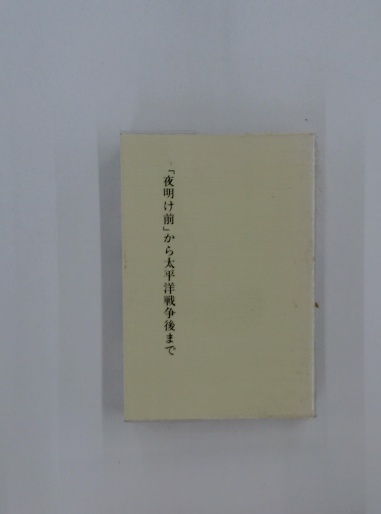 「夜明け前」から太平洋戦争後まで